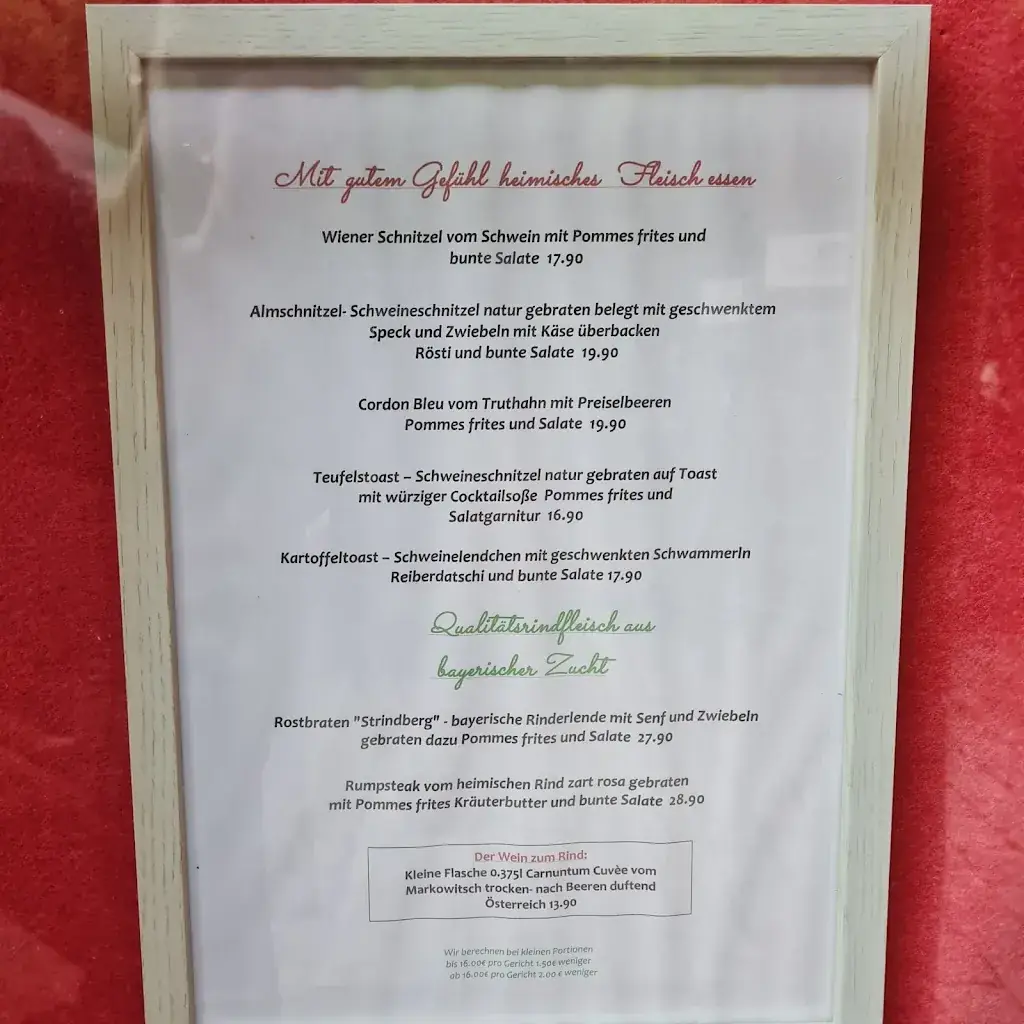 Mit gutem Gefühl heimisches Fleisch essen
Wiener Schnitzel vom Schwein mit Pommes frites und
bunte Salate 17.90
Almschnitzel- Schweineschnitzel natur gebraten belegt mit geschwenktem
Speck und Zwiebeln mit Käse überbacken
Rösti und bunte Salate 19.90
Cordon Bleu vom Truthahn mit Preiselbeeren
Pommes frites und Salate 19.90
Teufelstoast – Schweineschnitzel natur gebraten auf Toast
mit würziger Cocktailsoße Pommes frites und
Salatgarnitur 16.90
Kartoffeltoast – Schweinelendchen mit geschwenkten Schwammerln
Reiberdatschi und bunte Salate 17.90
Qualitätsrindfleisch aus
bayerischer Zucht
Rostbraten "Strindberg" - bayerische Rinderlende mit Senf und Zwiebeln
gebraten dazu Pommes frites und Salate 27.90
Rumpsteak vom heimischen Rind zart rosa gebraten
mit Pommes frites Kräuterbutter und bunte Salate 28.90
Der Wein zum Rind:
Kleine Flasche 0.375l Carnuntum Cuvèe vom
Markowitsch trocken- nach Beeren duftend
Österreich 13.90
Wir berechnen bei kleinen Portionen
bis 16.00€ pro Gericht 1.50€ weniger
ab 16.00€ pro Gericht 2.00 € weniger